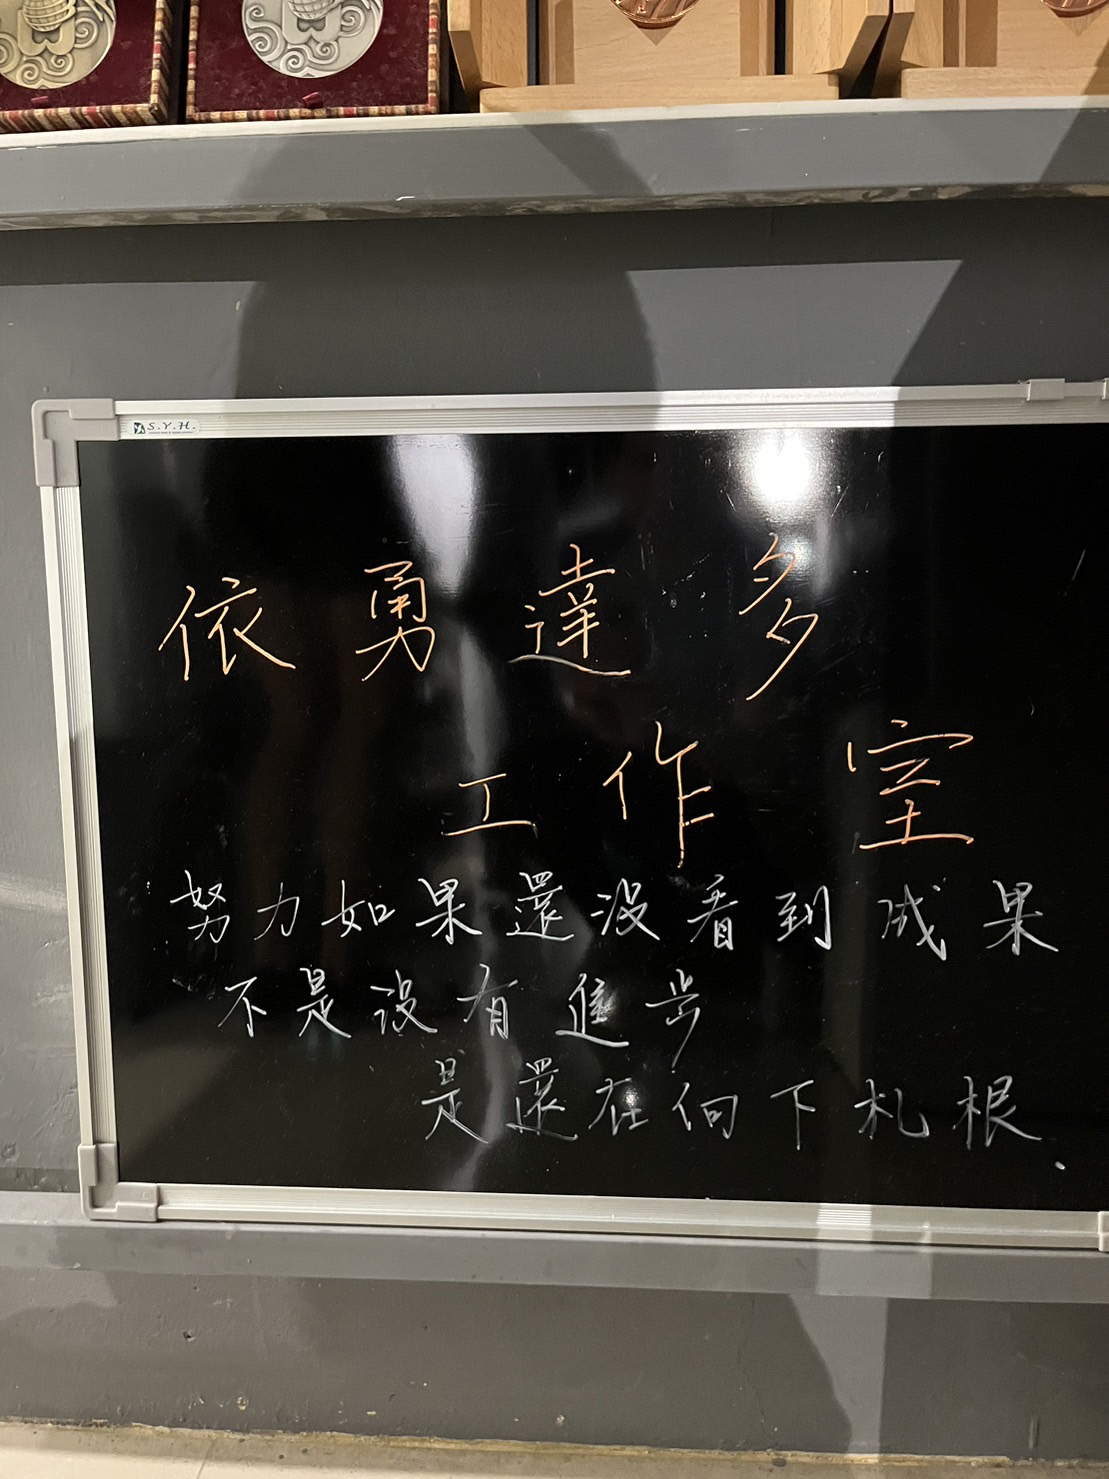 S.Y.H.
依勇達多
工作室
努力如果還沒看到成果
不是沒有進步
是還在向下札根.